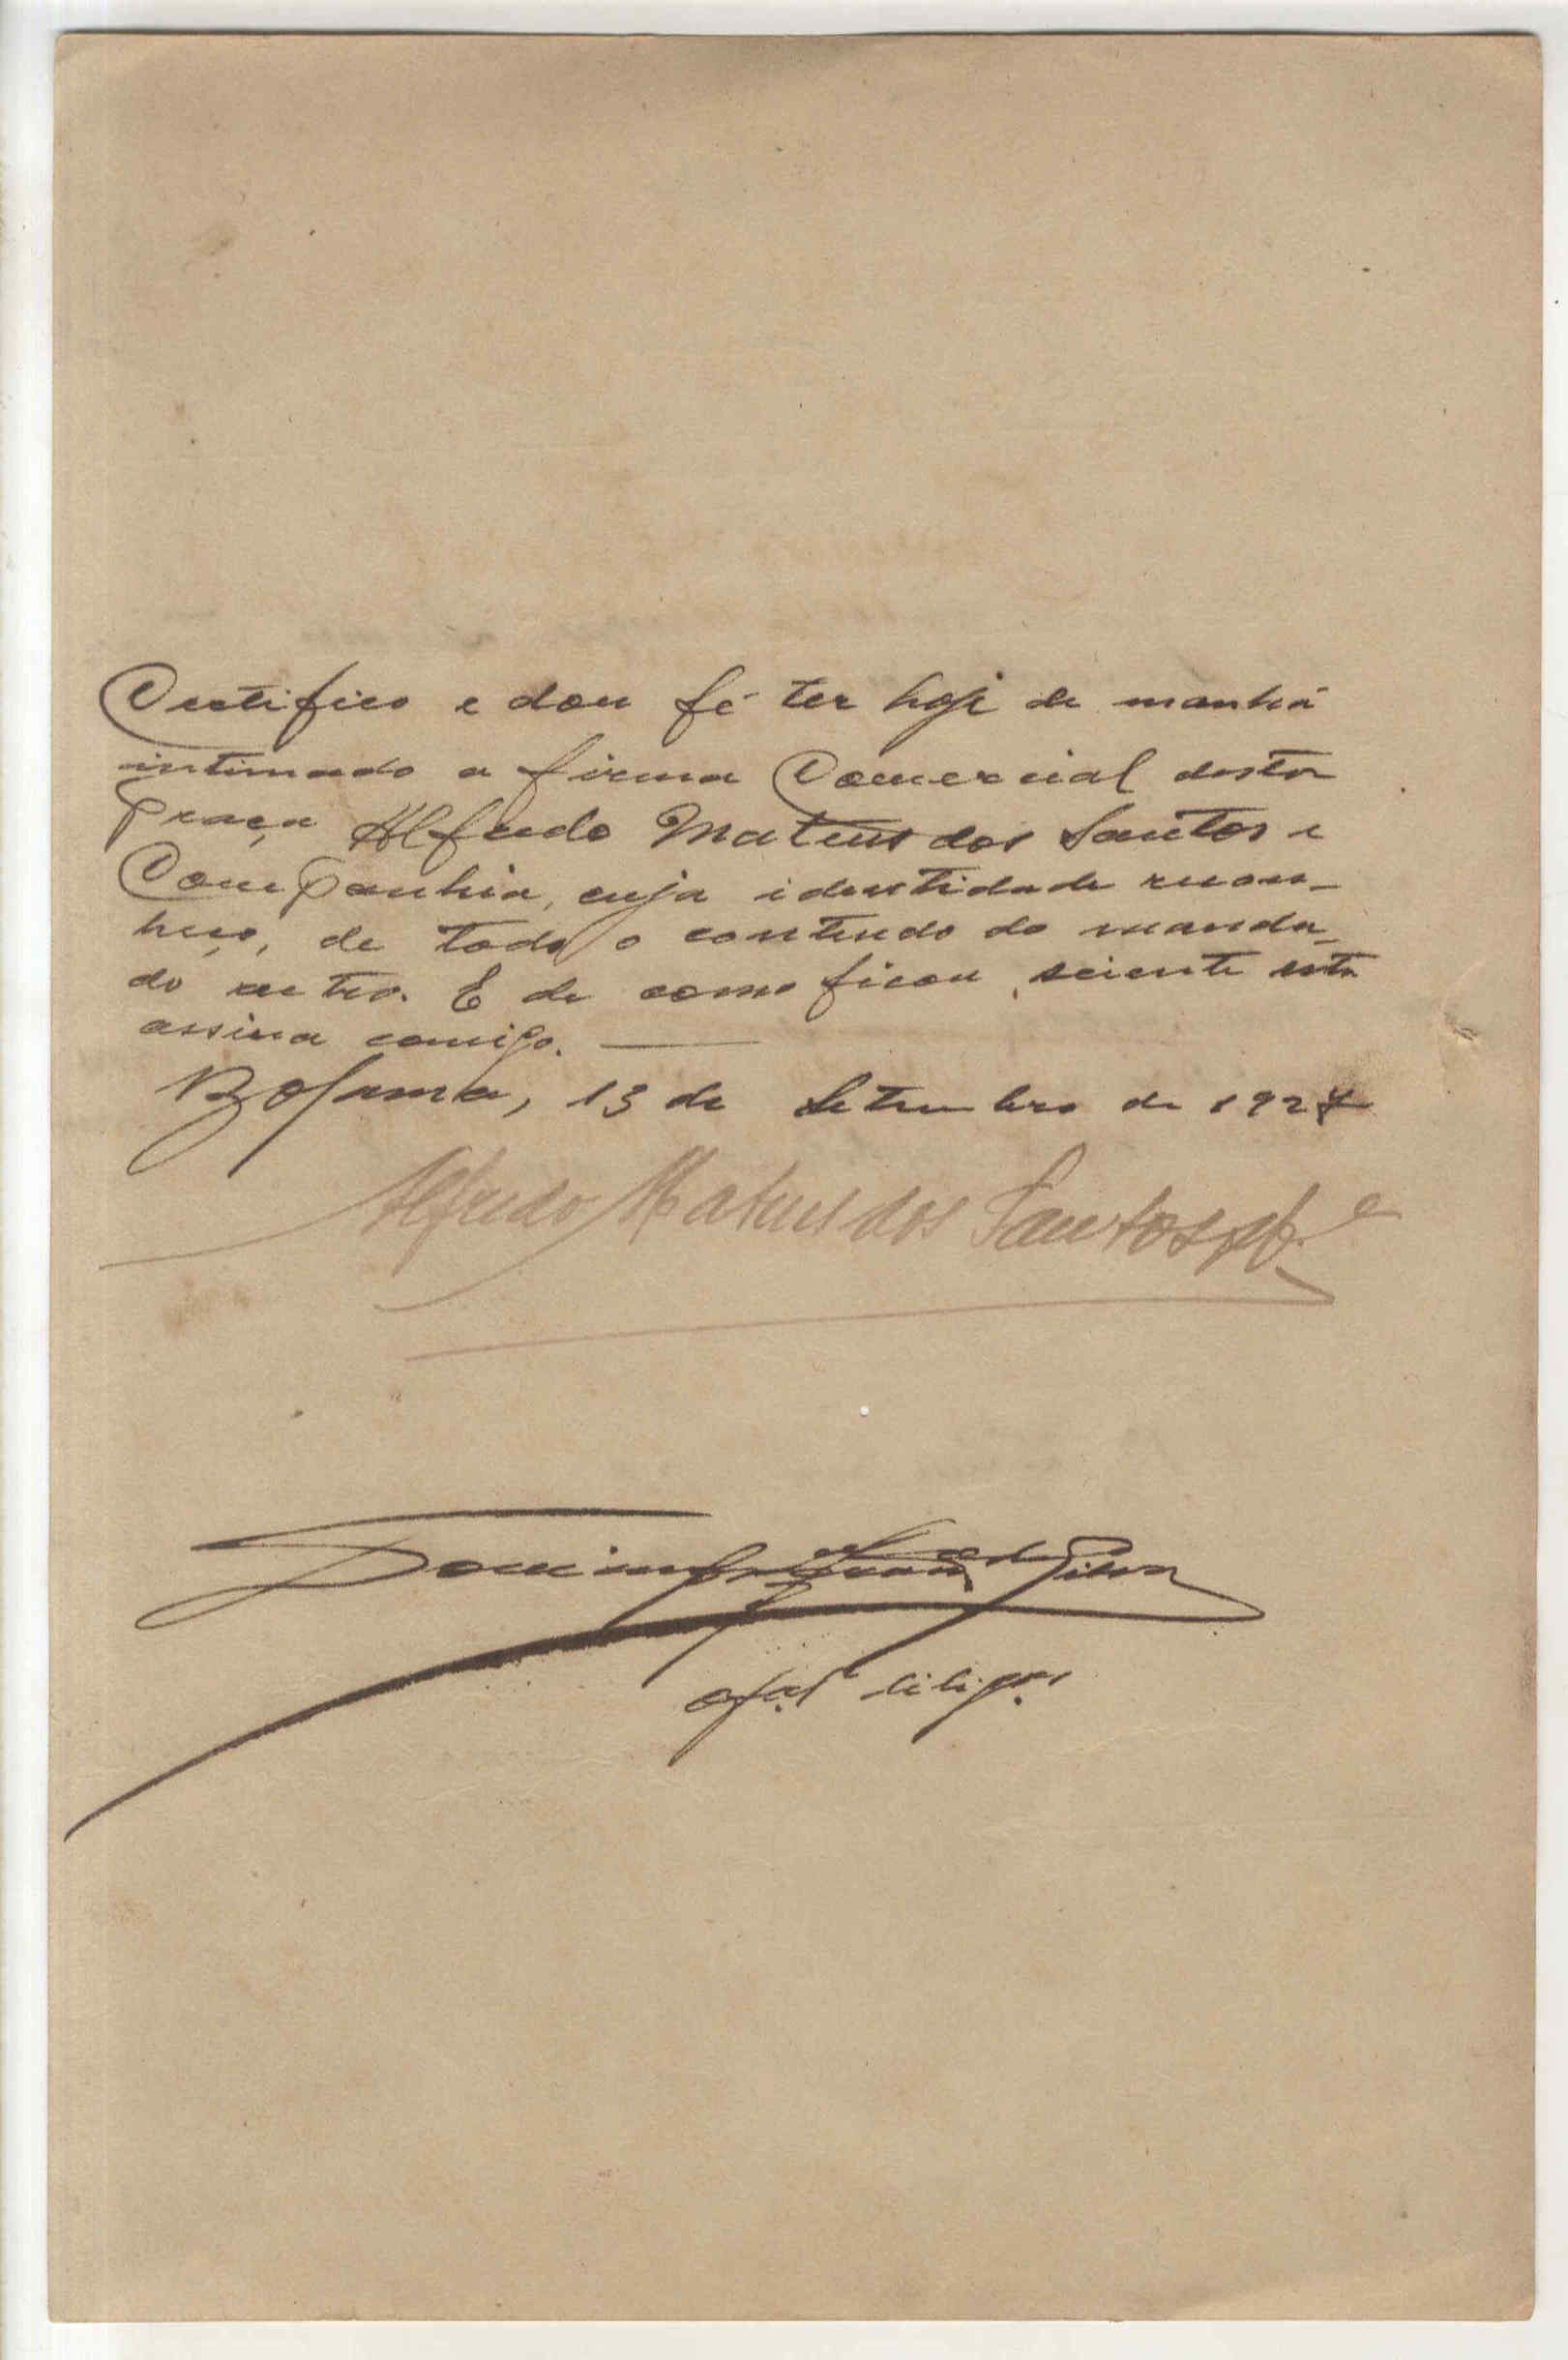 Certifico e dou fé ter hoje de manhã
intimado a firma Comercial desta
praça Alfredo Mateus dos Santos e
Companhia, cuja identidade recon-
heço, de todo o conteudo do manda-
do retro. E de como ficou sciente esta
assina comigo. ———
Bolama, 13 de Setembro de 1927
Alfredo Mateus dos Santos & C.ª
Domingos da Silva